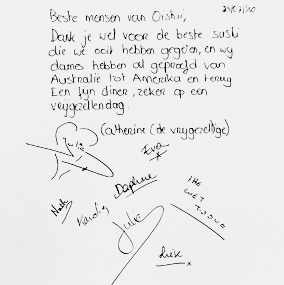 24/07/20
Beste mensen van Oishii,
Dank je wel voor de beste sushi
die we ooit hebben gegeten, en wij
dames hebben al geproefd van
Australië tot Amerika en terug
Een fijn diner, zeker op een
vrijgezellendag.
Catherine (de vrijgezellige)
Julie
Eva
Daphne
Julie